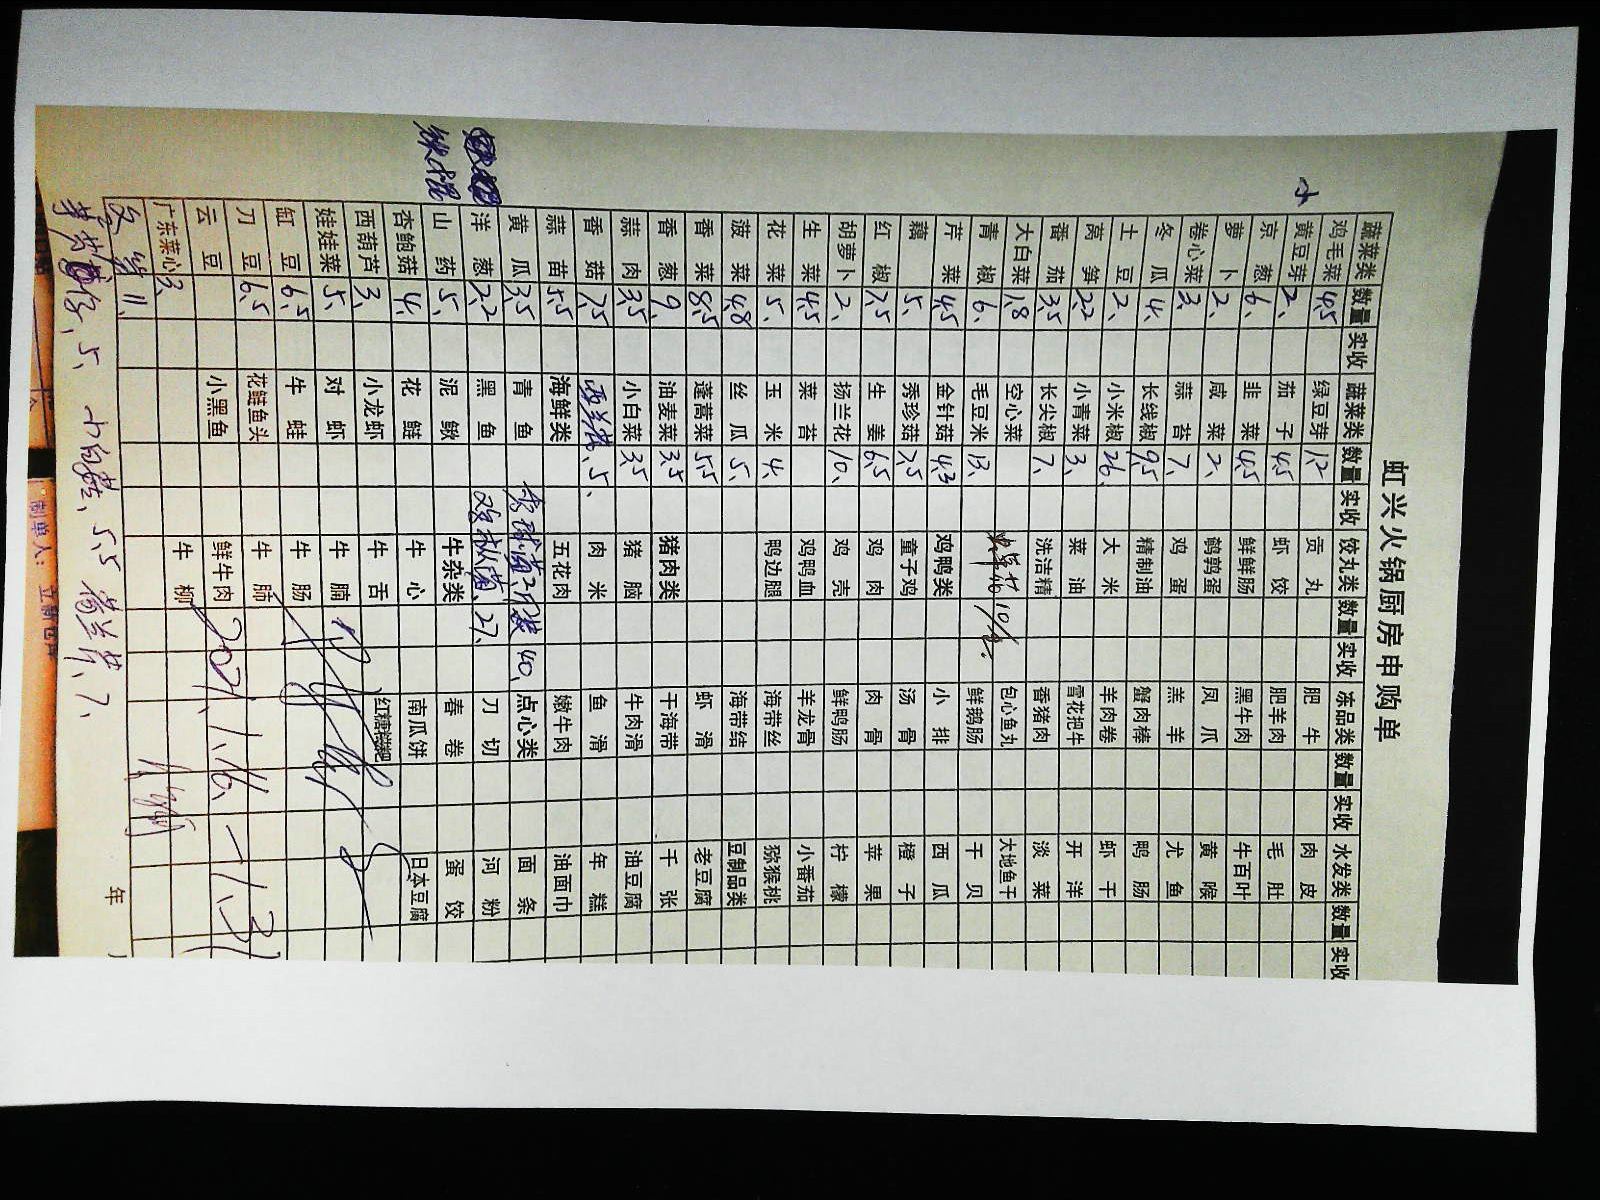 虹兴火锅厨房申购单
蔬菜类 数量 实收 蔬菜类 数量 实收 饺丸类 数量 实收 冻品类 数量 实收 水发类 数量 实收
鸡毛菜 4.5 绿豆芽 1.2 贡丸 肥牛 肉皮
黄豆芽 2、 茄子 4.5 虾饺 肥羊肉 毛肚
京葱 6、 韭菜 4.5 鲜鲜肠 黑牛肉 牛百叶
萝卜 2、 咸菜 2、 鹌鹑蛋 凤爪 黄喉
卷心菜 3、 蒜苔 7、 鸡蛋 羔羊 尤鱼
冬瓜 4、 长线椒 9.5 精制油 蟹肉棒 鸭肠
土豆 2、 小米椒 26、 大米 羊肉卷 虾干
莴笋 2.2 小青菜 3、 菜油 雪花把牛 开洋
番茄 3.5 长尖椒 7、 洗洁精 香猪肉 淡菜
大白菜 1.8 空心菜 包心鱼丸 大地鱼干
青椒 6、 毛豆米 13、 10/ 鲜鹅肠 干贝
芹菜 4.5 金针菇 4.3 鸡鸭类 小排 西瓜
藕 5、 秀珍菇 7.5 童子鸡 汤骨 橙子
红椒 7.5 生姜 6.5 鸡肉 肉骨 苹果
胡萝卜 2、 扬兰花 10、 鸡壳 鲜鸭肠 柠檬
生菜 4.5 菜苔 鸡鸭血 羊龙骨 小番茄
花菜 5、 玉米 4、 鸭边腿 海带丝 猕猴桃
菠菜 4.8 丝瓜 5、 海带结 豆制品类
香菜 8.5 蓬蒿菜 5.5 虾滑 老豆腐
香葱 9、 油麦菜 3.5 猪肉类 干海带 千张
蒜肉 3.5 小白菜 3.5 猪脑 牛肉滑 油豆腐
香菇 7.5 西兰花 5、 肉米 鱼滑 年糕
蒜苗 5.5 海鲜类 五花肉 嫩牛肉 油面巾
黄瓜 3.5 青鱼 40、 点心类 面条
洋葱 2.2 黑鱼 鸡枞菌、27、 刀切 河粉
山药 5、 泥鳅 牛杂类 春卷 蛋饺
杏鲍菇 4、 花鲢 牛心 南瓜饼 日本豆腐
西葫芦 3、 小龙虾 牛舌 红糖糍粑
娃娃菜 5、 对虾 牛腩
缸豆 6.5 牛蛙 牛肠
刀豆 6.5 花鲢鱼头 牛肺
云豆 小黑鱼 鲜牛肉 2021.1.16、—1.31
广东菜心 3、 牛柳
冬笋 11、
年
5、 5.5 7、
制单人：